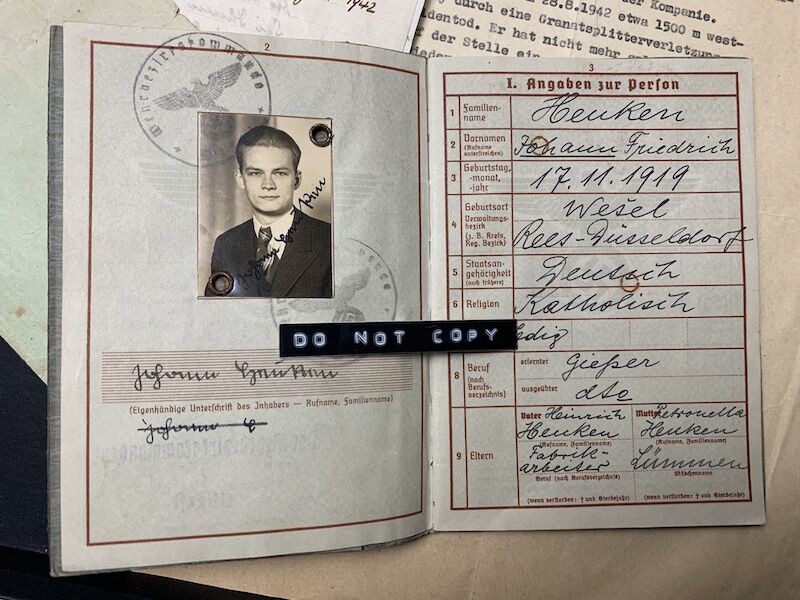 1942
der Kompanie.
28.8.1942 etwa 1500 m west-
durch eine Granatsplitterverletzung
ldentod. Er hat nicht mehr
der Stelle
2
Wehrbezirkskommando
Johann Henken
DO NOT COPY
Johann Henken
(Eigenhändige Unterschrift des Inhabers — Rufname, Familienname)
Johann
3
I. Angaben zur Person
1 Familien-
name
Henken
2 Vornamen
(Rufname
unterstreichen)
Johann Friedrich
3 Geburtstag,
-monat,
-jahr
17.11.1919
4 Geburtsort
Verwaltungs-
bezirk
(z. B. Kreis,
Reg. Bezirk)
Wesel
Rees-Düsseldorf
5 Staatsan-
gehörigkeit
(auch frühere)
Deutsch
6 Religion
Katholisch
edig
8 Beruf
(nach
Berufs-
verzeichnis)
erlernter Gießer
ausgeübter dto
9 Eltern
Vater Heinrich
Henken
(Rufname, Familienname)
Fabrik-
arbeiter
Beruf (nach Berufsverzeichnis)
(wenn verstorben: † und Sterbejahr)
Mutter Petronella
Henken
(Rufname, Familienname)
Lümmen
Mädchenname
(wenn verstorben: † und Sterbejahr)